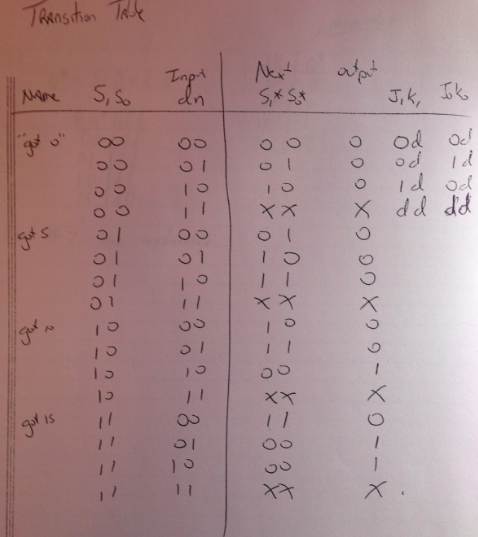 Transition Table
Input Next output
Name S1 S0 dn S1* S0* J1 K1 J0 K0
"got 0" 00 00 00 0 0d 0d
00 01 01 0 0d 1d
00 10 10 0 1d 0d
00 11 XX X dd dd
got 5 01 00 01 0
01 01 10 0
01 10 11 0
01 11 XX X
got 10 10 00 10 0
10 01 11 0
10 10 00 1
10 11 XX X
got 15 11 00 11 0
11 01 00 1
11 10 00 1
11 11 XX X